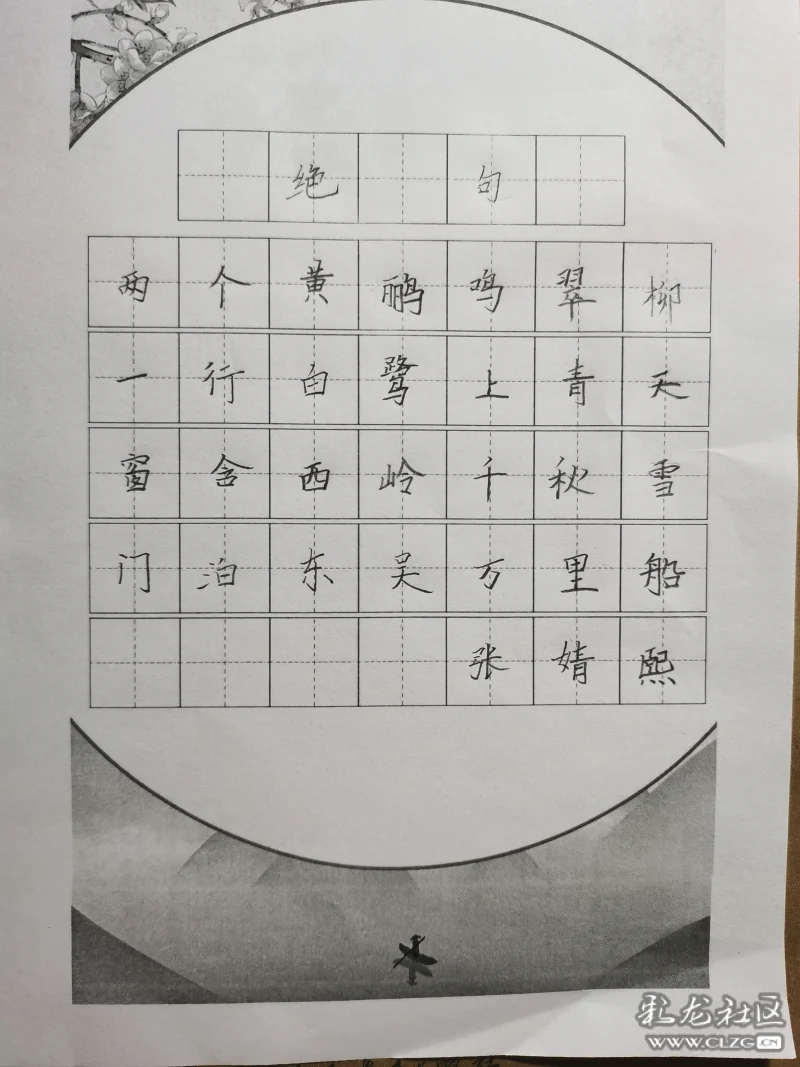 绝句
两个黄鹂鸣翠柳
一行白鹭上青天
窗含西岭千秋雪
门泊东吴万里船
张婧熙
彩龙社区
WWW.CLZG.CN